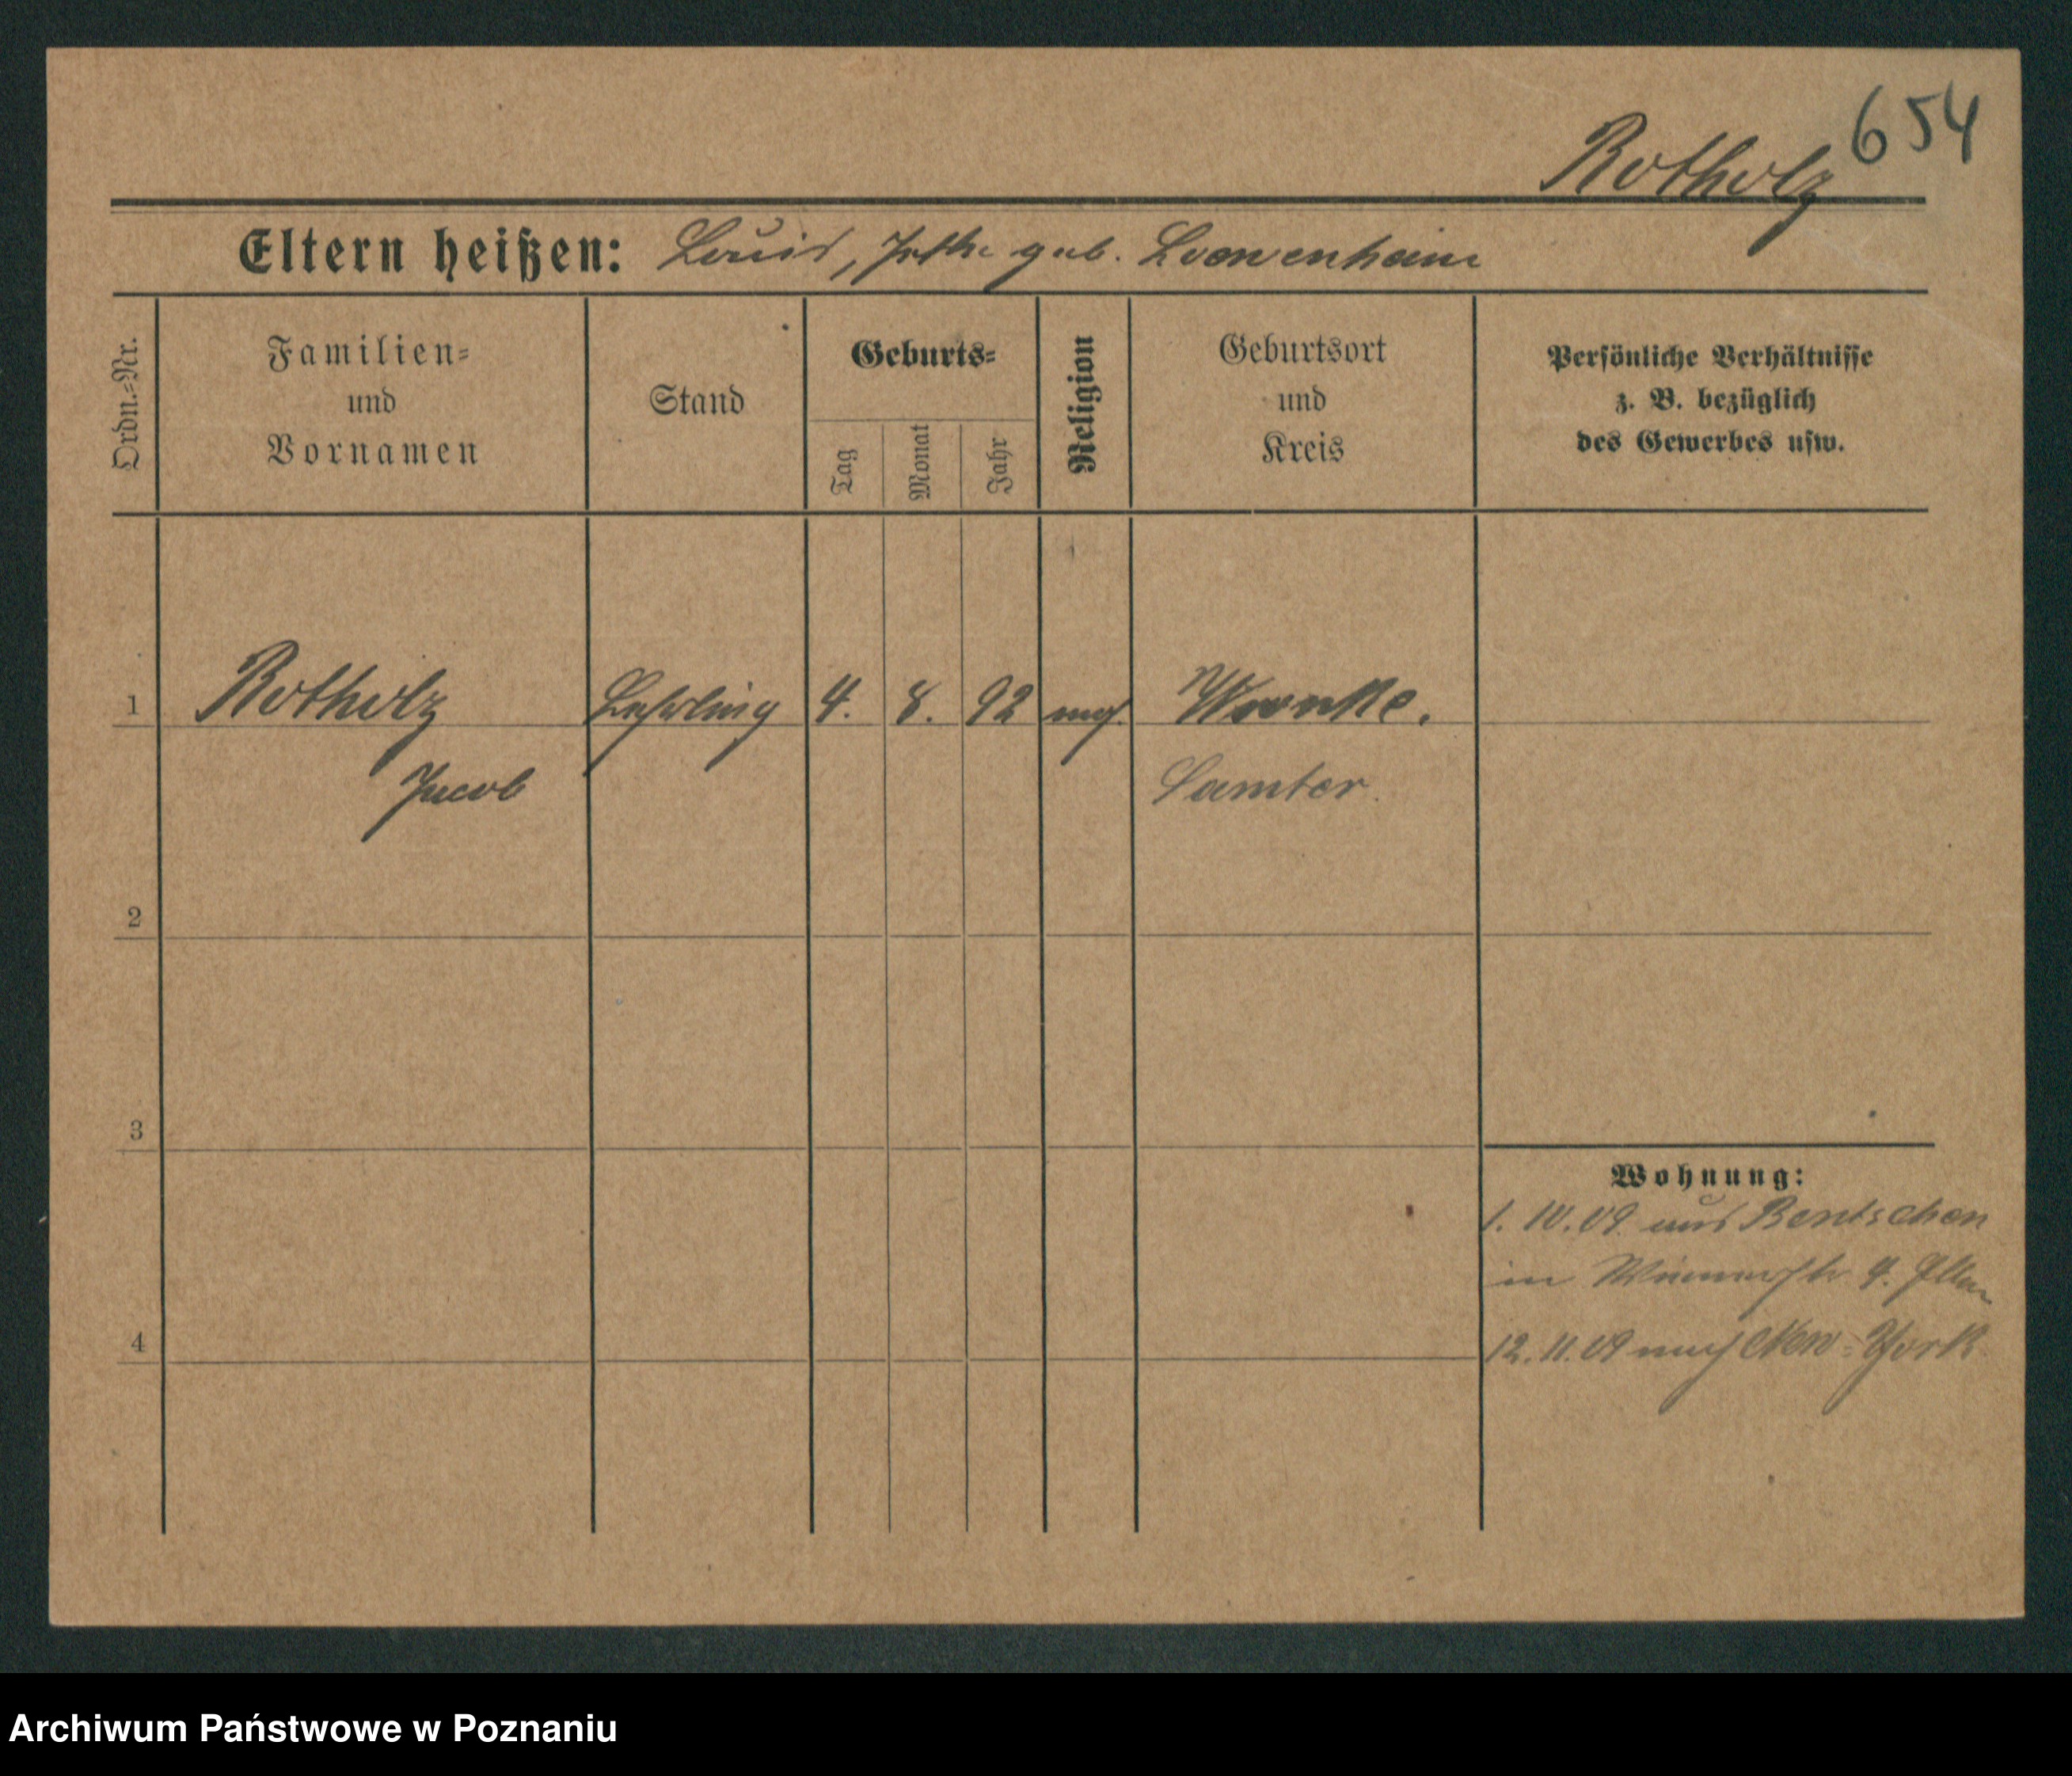 654
Rotholz
Eltern heißen: Louis, Jette geb. Loewenheim
Ordn.=Nr.
Familien=
und
Vornamen
Stand
Geburts=
Tag
Monat
Jahr
Religion
Geburtsort
und
Kreis
Persönliche Verhältnisse
z. B. bezüglich
des Gewerbes usw.
1 Rotholz Lehrling 4. 8. 92 mos. Wronke.
Jacob Samter.
2
3
Wohnung:
1. 10. 09. aus Bentschen
in 4.
4
12. 11. 09 nach New=York
Archiwum Państwowe w Poznaniu